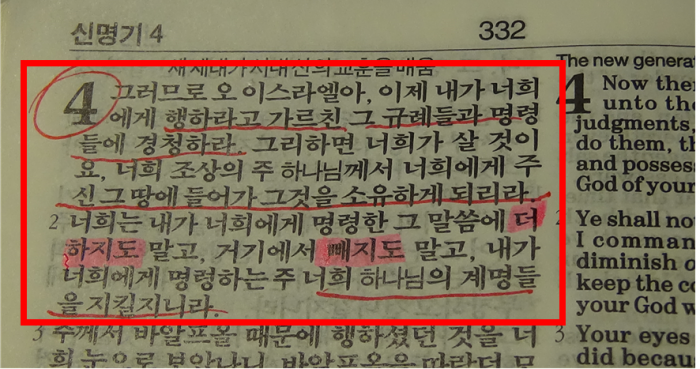 신명기 4
332
새 세대가 시내 산의 교훈을 배움
4 그러므로 오 이스라엘아, 이제 내가 너희
에게 행하라고 가르친 그 규례들과 명령
들에 경청하라. 그리하면 너희가 살 것이
요, 너희 조상의 주 하나님께서 너희에게 주
신 그 땅에 들어가 그것을 소유하게 되리라.
2 너희는 내가 너희에게 명령한 그 말씀에 더
하지도 말고, 거기에서 빼지도 말고, 내가
너희에게 명령하는 주 너희 하나님의 계명들
을 지킬지니라.
3 주께서 바알프올 때문에 행하셨던 것을 너
희 눈으로 보았나니, 바알프올을 따랐던 모
The new genera
4 Now the
unto th
judgments,
do them, th
and possess
God of your
2 Ye shall no
I comman
diminish o
keep the co
your God w
3 Your eyes
did becau